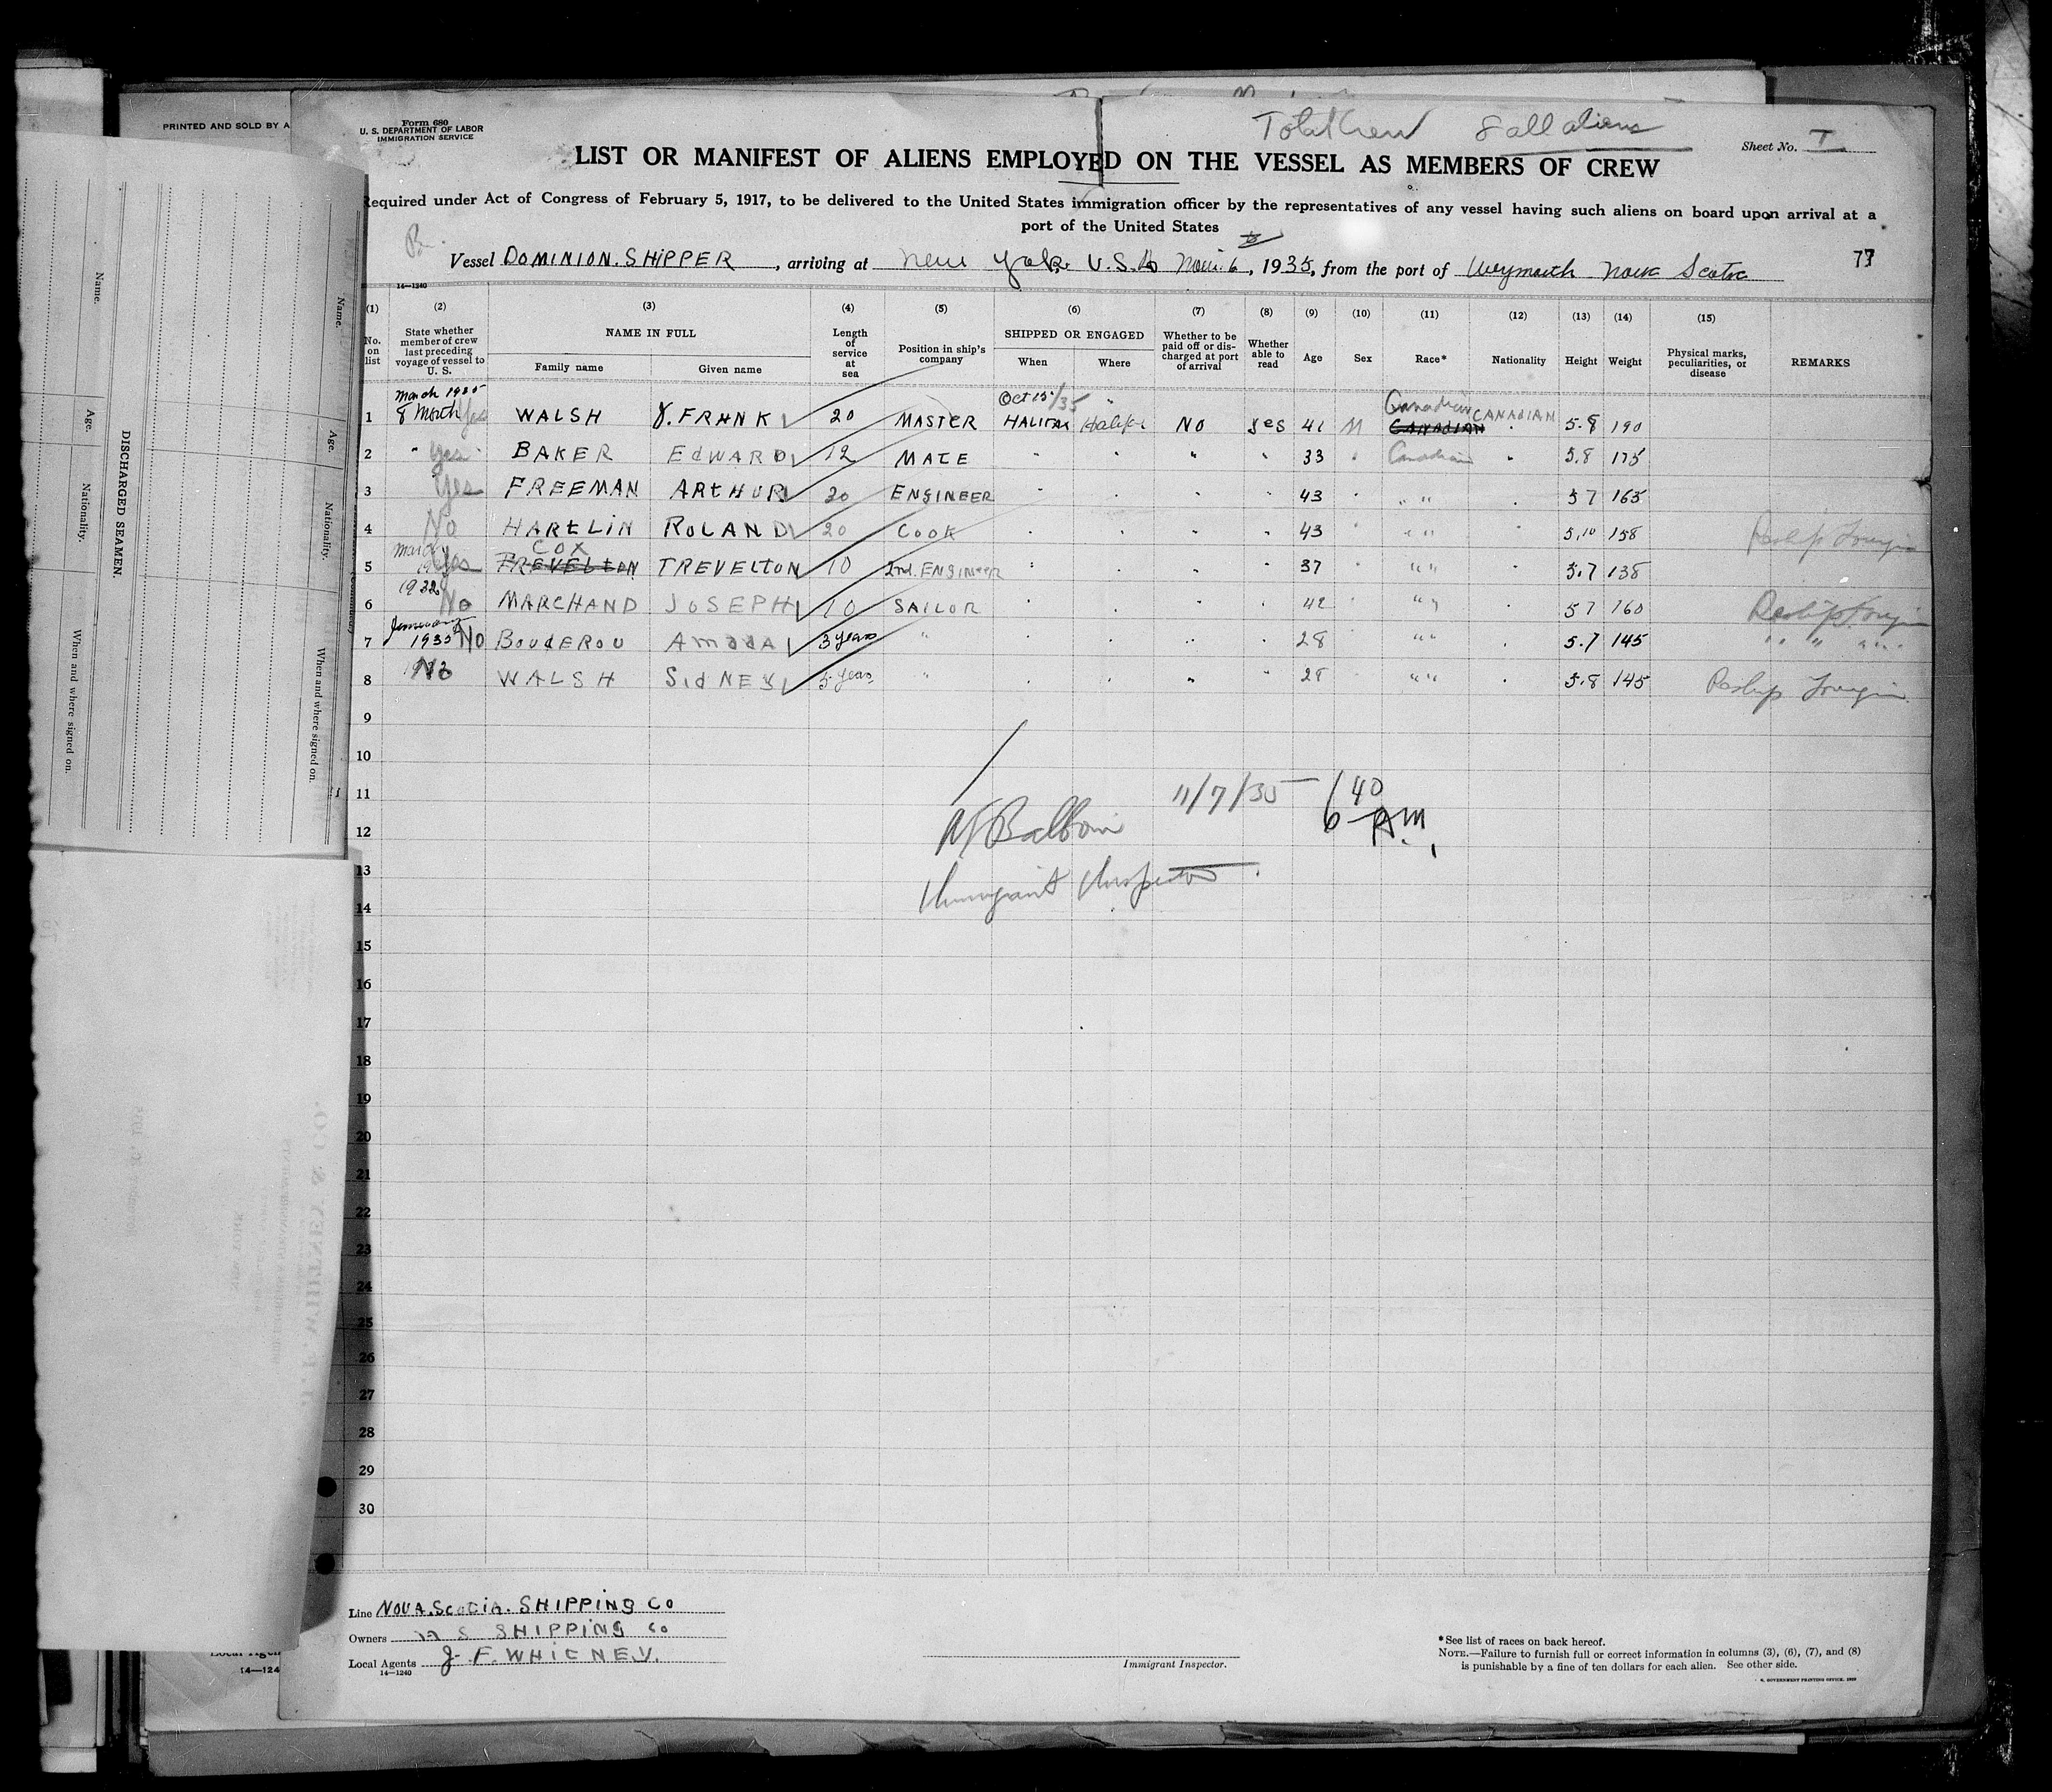 PRINTED AND SOLD BY A
Form 680
U. S. DEPARTMENT OF LABOR
IMMIGRATION SERVICE
Total Crew 8 all aliens
Sheet No. I
LIST OR MANIFEST OF ALIENS EMPLOYED ON THE VESSEL AS MEMBERS OF CREW
Required under Act of Congress of February 5, 1917, to be delivered to the United States immigration officer by the representatives of any vessel having such aliens on board upon arrival at a
port of the United States
Vessel DOMINION. SHIPPER, arriving at New York U.S.A Nov 6, 1935, from the port of Weymouth Nova Scotia
77
14—1240
(1) (2) (3) (4) (5) (6) (7) (8) (9) (10) (11) (12) (13) (14) (15)
No. on list State whether member of crew last preceding voyage of vessel to U. S. NAME IN FULL Family name Given name Length of service at sea Position in ship's company SHIPPED OR ENGAGED When Where Whether to be paid off or discharged at port of arrival Whether able to read Age Sex Race* Nationality Height Weight Physical marks, peculiarities, or disease REMARKS
March 1935 Oct 15/35 Canadian
1 8 Month Yes WALSH J. FRANK 20 MASTER HALIFAX Halifax NO yes 41 M CANADIAN CANADIAN 5.8 190
2 " Yes BAKER EdWARD 12 MATE " " " " 33 " Canadian " 5.8 175
3 Yes FREEMAN ARtHUR 20 ENGINEER " " " " 43 " " " " 5 7 165
4 No HARtLIN ROLAND 20 COOK " " " " 43 " " " " 5.10 158
COX
5 March Yes TREVELTON 10 2nd. ENGINEER " " " " 37 " " " " 5.7 138
6 1932 No MARCHAND JOSEPH 10 SAILOR " " " " 42 " " " " 5 7 160
7 1935 No BOUdEROU AmadA 3 years " " " " " 28 " " " " 5.7 145 " " " "
8 No WALSH SidNEY 5 years " " " " " 28 " " " " 5.8 145
9
10
11 11/7/35 6 40 AM.
12
13 Immigrant Inspector
14
15
16
17
18
19
20
21
22
23
24
25
26
27
28
29
30
Line NOVA. SCOTIA. SHIPPING CO
Owners N S SHIPPING Co
Local Agents J. F. WHITNEY.
14—1240
Immigrant Inspector.
*See list of races on back hereof.
NOTE.—Failure to furnish full or correct information in columns (3), (6), (7), and (8)
is punishable by a fine of ten dollars for each alien. See other side.
DISCHARGED SEAMEN.
Name. Age. Nationality. When and where signed on.
Name. Age. Nationality. When and where signed on.
14—124